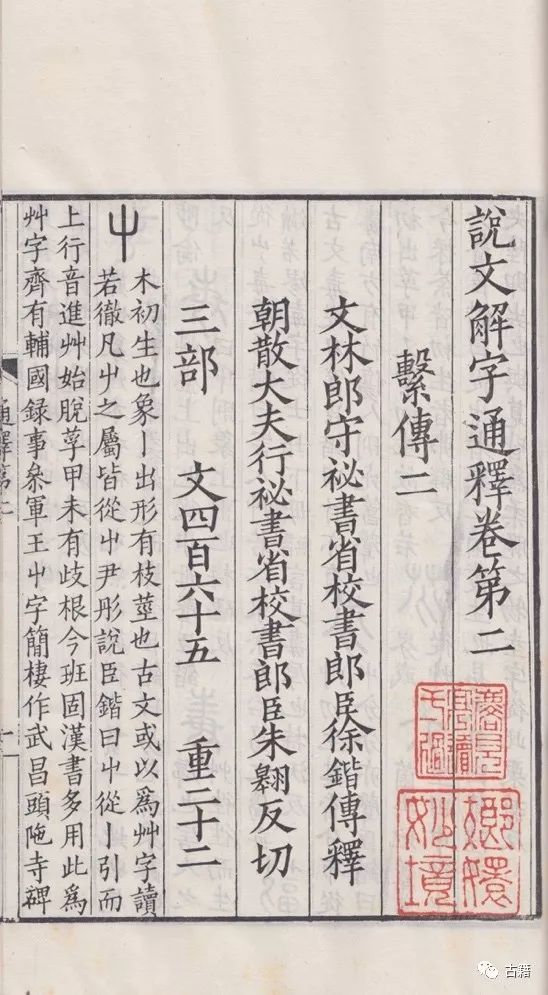 說文解字通釋卷第二
繫傳二
文林郎守祕書省校書郎臣徐鍇傳釋
朝散大夫行祕書省校書郎臣朱翱反切
三部 文四百六十五 重二十二
屮
木初生也象丨出形有枝莖也古文或以爲艸字讀
若徹凡屮之屬皆從屮尹彤說臣鍇曰屮從丨引而
上行音進艸始脫莩甲未有歧根今班固漢書多用此爲
艸字齊有輔國録事叅軍王屮字簡棲作武昌頭陁寺碑
通釋第二
嫏嬛妙境
古籍